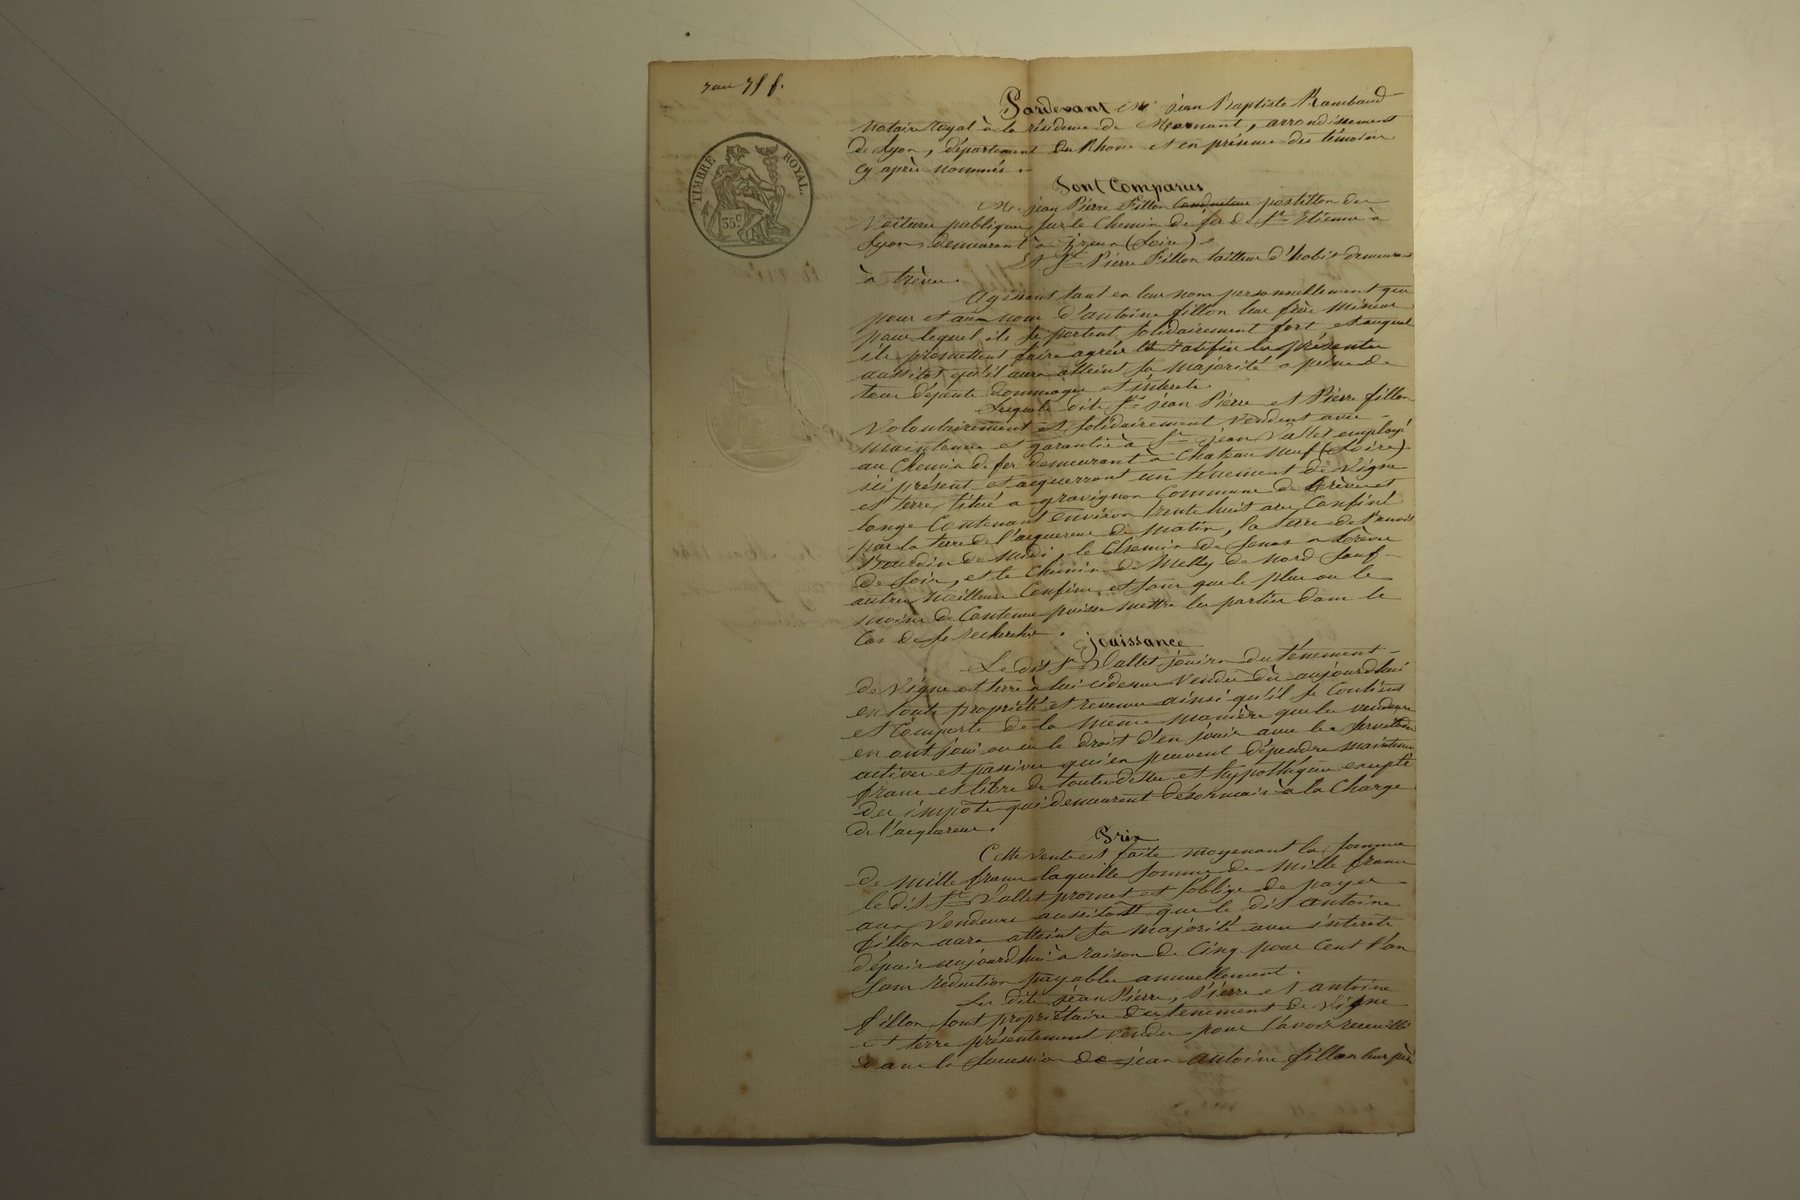 TIMBRE ROYAL
35 c
Pardevant Me jean Baptiste Rambaud
Notaire royal à la résidence de Mornant, arrondissement
de Lyon, département du Rhone et en présence des témoins
cy après nommés.
Sont Comparus
Mr. jean Pierre Fillon conducteur postillon des
Voitures publiques sur le Chemin de fer de St Etienne à
Lyon, demeurant à (Loire)
Et Sr Pierre Fillon tailleur d'habit demeurant
à trèves.
Agissant tant en leur nom personnellement que
pour et au nom d'antoine fillon leur frère mineur
pour lequel ils se portent solidairement fort, et auquel
ils promettent faire agréer et ratifier les présentes
aussitot qu'il aura atteint sa majorité a peine de
tous dépents dommages et intérets.
Lesquels dits Srs jean Pierre et Pierre fillon
Volontairement et solidairement vendent avec
maintenue et garantie à Sr jean Vallet employé
au Chemin de fer demeurant à Chateauneuf (Loire)
ici présent et acquerrant un ténement de Vigne
et terre, situé a gravignon Commune de trèves et
longes Contenant environ trente huit ares Confiné
par la terre de l'acquereur de matin, la terre de Benoit
Bourdin de midi, le Chemin de a trèves
de Soir, et le Chemin de Melly de Nord Sauf
autres meilleurs Confins, et sans que le plus ou le
moins de Contenue puisse mettre les parties dans le
Cas de se rechercher.
jouissance
Le dit Sr Vallet jouira du ténement
de Vigne et terre à lui cidessus Vendu dès aujourd'hui
en toute propriété et revenus ainsi qu'il se Contient
et Comporte de la même manière que les vendeurs
en ont joui ou eu le droit d'en jouir avec les servitudes
actives et passives qui en peuvent dépendre maintenu
franc et libre de toutes dettes et hypothèques excepté
des impots qui demeurent désormais à la Charge
de l'acquereur.
Prix
Cette vente est faite moyenant la somme
de mille francs laquelle somme de mille francs
le dit Sr Vallet promet et s'oblige de payer
aux Vendeurs aussitot que le dit antoine
fillon aura atteint sa majorité avec intérets
dépuis aujourd'hui à raison de Cinq pour Cent l'an
sans réduction payables annuellement.
Les dits jean Pierre, Pierre et antoine
fillon sont propriétaires du tenement de Vigne
et terre présentement vendu pour l'avoir recueilli
dans la succession de jean antoine fillon leur père